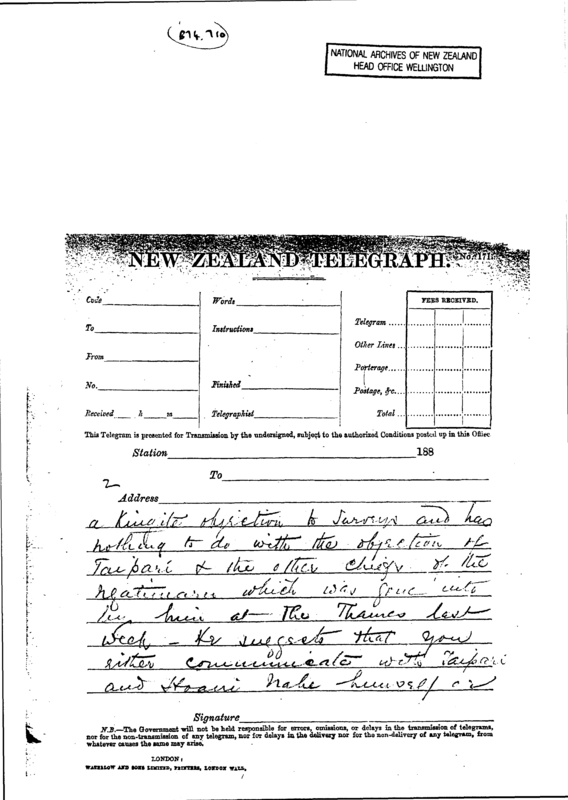 874.710
NATIONAL ARCHIVES OF NEW ZEALAND
HEAD OFFICE WELLINGTON
NEW ZEALAND TELEGRAPH.
Code
Words
FEES RECEIVED.
To
Instructions
Telegram
Other Lines
From
Porterage
No.
Finished
Postage, &c.
Received h m
Telegraphist
Total
This Telegram is presented for Transmission by the undersigned, subject to the authorized Conditions posted up in this Office
Station 188
To
2
Address
a Kingite objection to Surveys and has
nothing to do with the objection of
Taipari & the other chiefs of the
Ngatimaru which was gone into
by him at The Thames last
week - He suggests that you
either communicate with Taipari
and Hoani Nahe himself or
Signature
N.B.—The Government will not be held responsible for errors, omissions, or delays in the transmission of telegrams,
nor for the non-transmission of any telegram, nor for delays in the delivery nor for the non-delivery of any telegram, from
whatever causes the same may arise.
LONDON:
WATERLOW AND SONS LIMITED, PRINTERS, LONDON WALL.